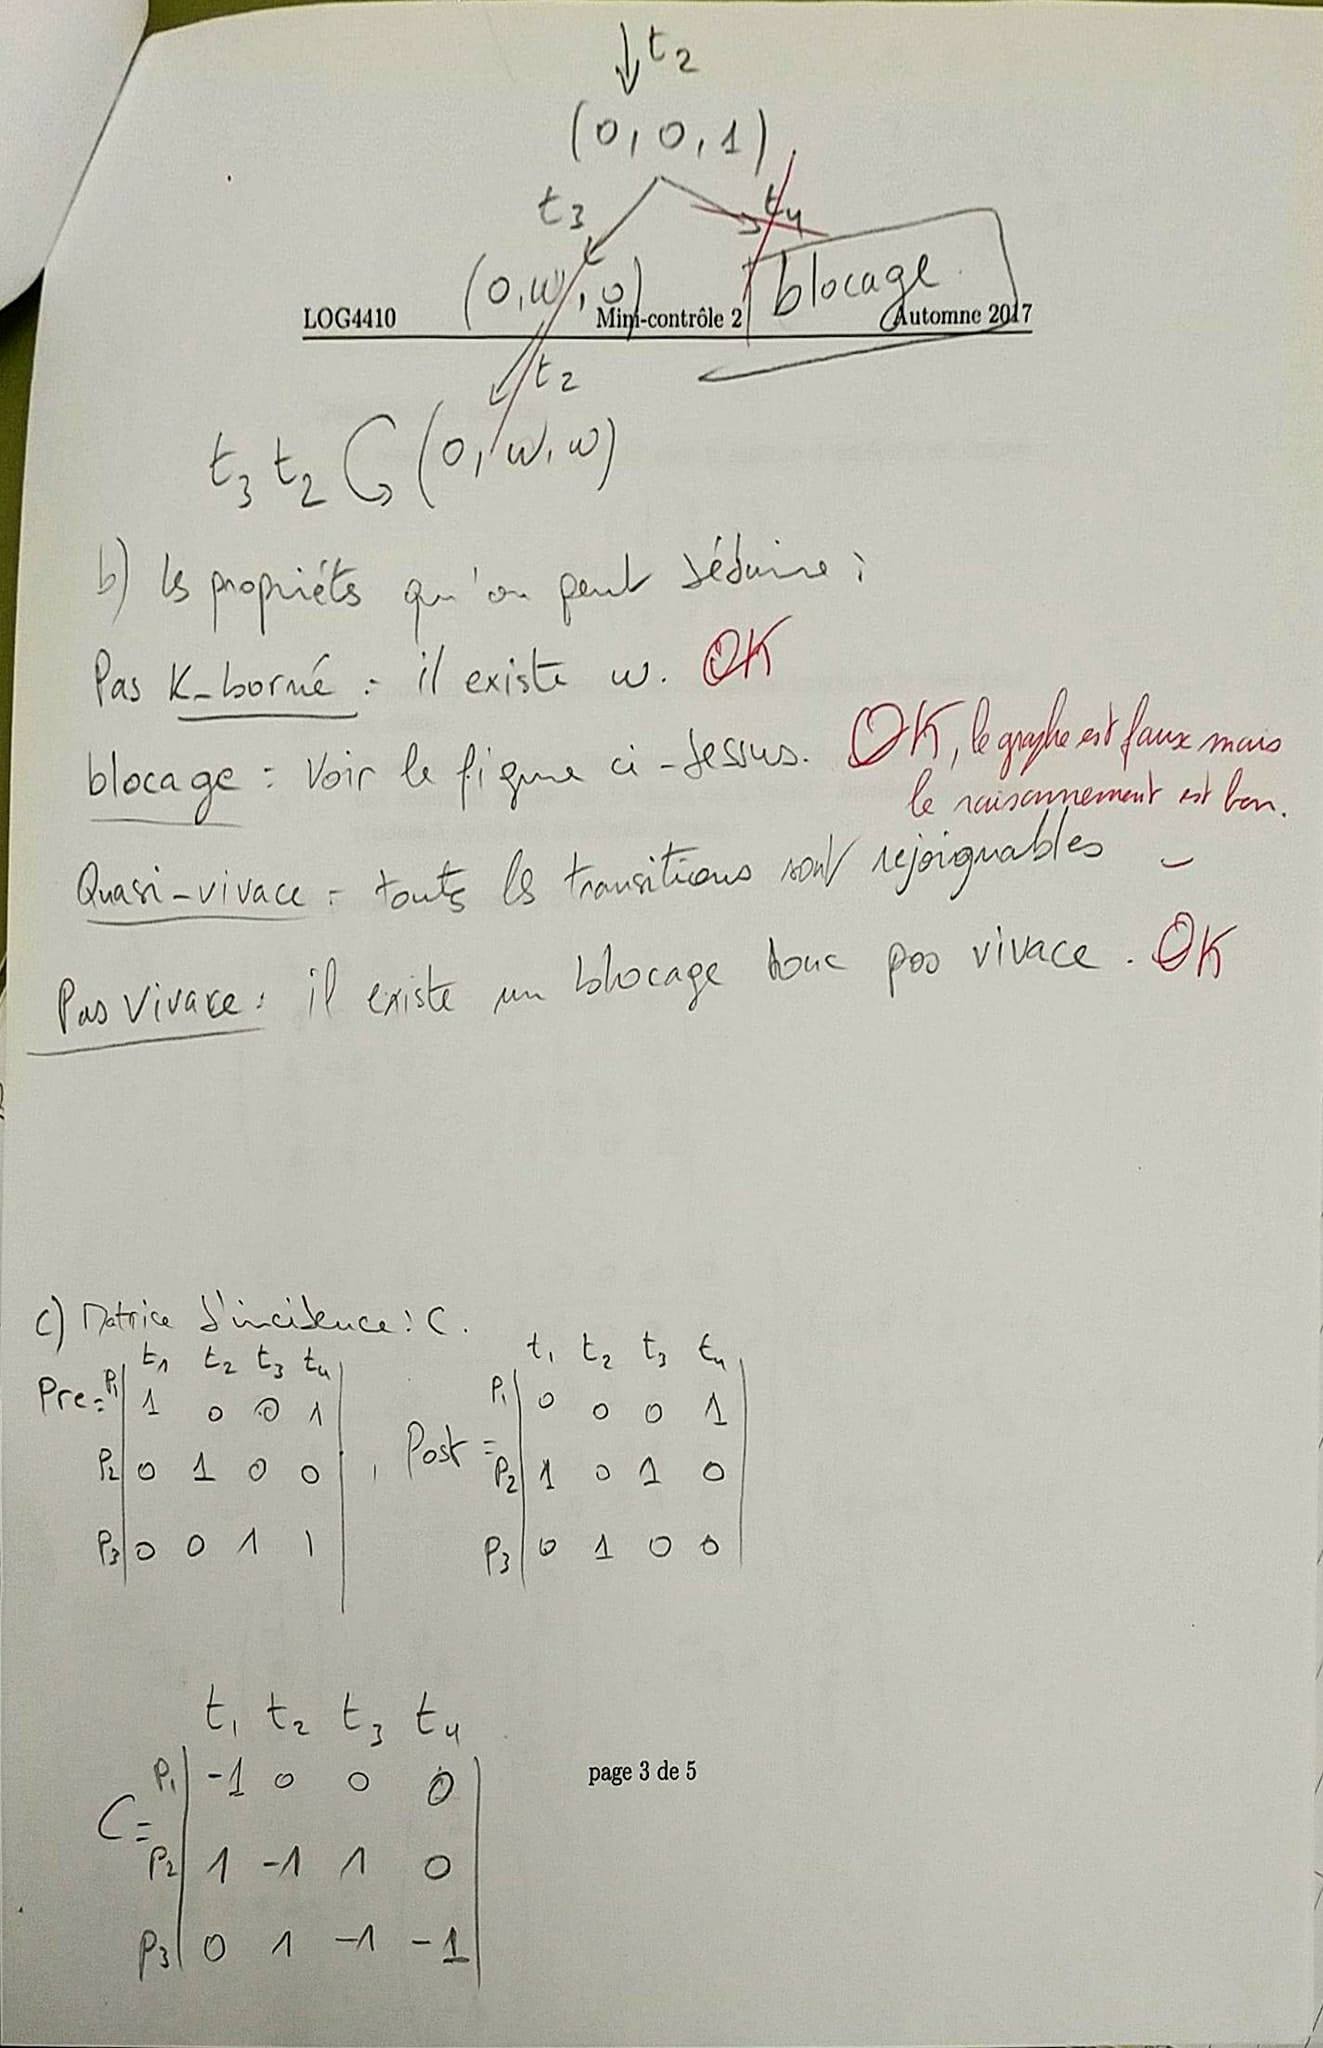 t2
(0, 0, 1)
t3
t4
(0, w, 0)
blocage
LOG4410 Mini-contrôle 2 Automne 2017
t2
t3 t2 (0, w, w)
b) les propriétés qu'on peut déduire :
Pas K-borné : il existe w. OK
blocage : Voir le figure ci-dessus. OK, le graphe est faux mais
le raisonnement est bon.
Quasi-vivace : touts les transitions sont rejoignables
Pas vivace : il existe un blocage donc pas vivace. OK
c) Matrice d'incidence : C.
t1 t2 t3 t4
Pre = P1 1 0 0 1
P2 0 1 0 0
P3 0 0 1 1
,
t1 t2 t3 t4
Post = P1 0 0 0 1
P2 1 0 1 0
P3 0 1 0 0
t1 t2 t3 t4
C = P1 -1 0 0 0
P2 1 -1 1 0
P3 0 1 -1 -1
page 3 de 5